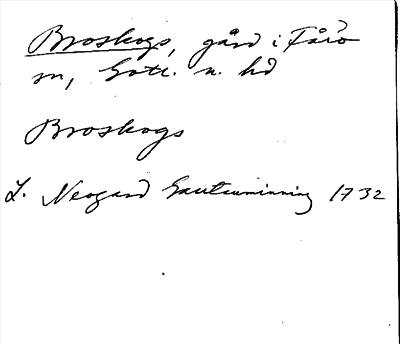 Broskogs, gård i Fårö
sn, Gotl. n. hd
Broskogs
L. Neogard Gautauminning 1732